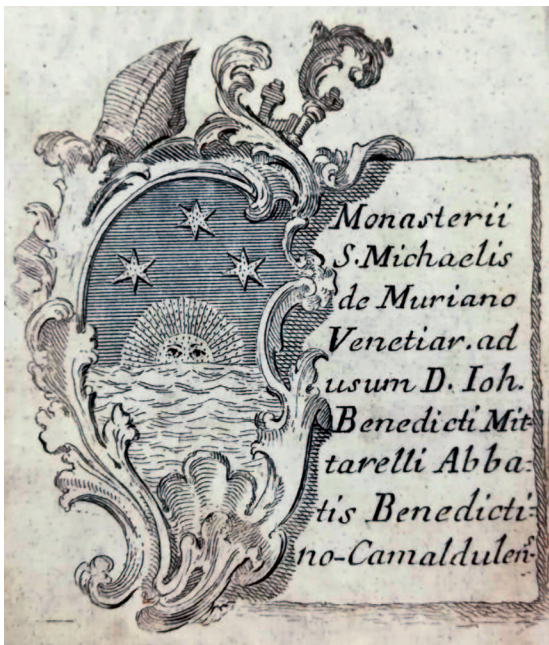 Monasterii
S. Michaelis
de Muriano
Venetiar. ad
usum D. Ioh.
Benedicti Mit=
tarelli Abba=
tis Benedicti=
no-Camaldulenˢ.